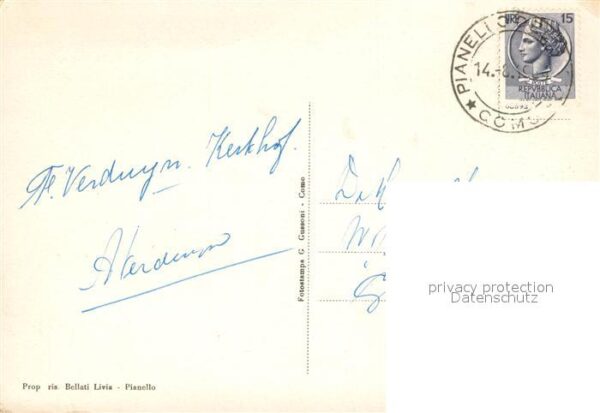 PIANELLO
COMO
14.-8.
LIRE 15
REPUBBLICA
ITALIANA
Verduyn. Kerkhof.
Verduyn
Fotostampa G. Gussoni - Como
privacy protection
Datenschutz
Prop ris. Bellati Livia - Pianello